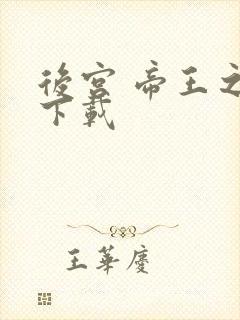 後宮 帝王之
下載
王華慶